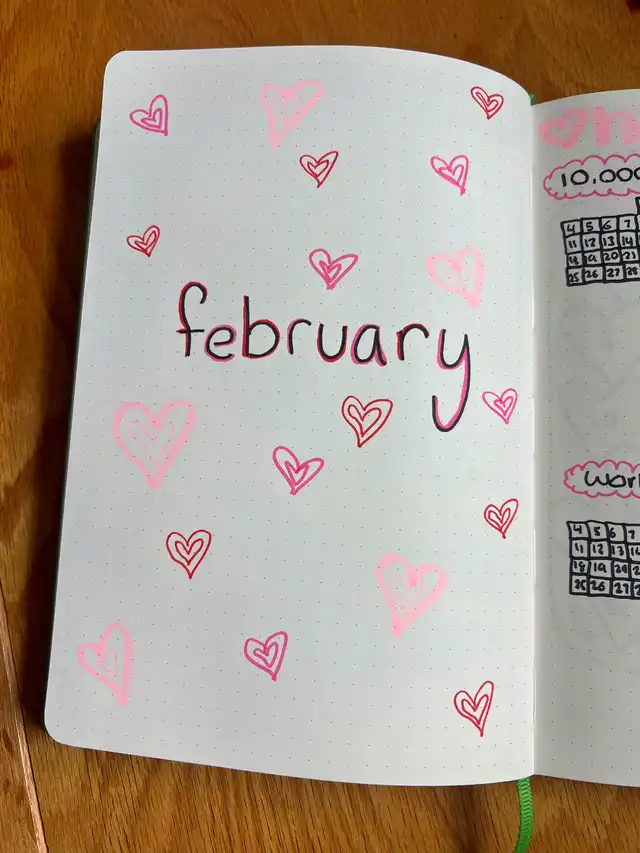 february
10.000
4 5 6 7
11 12 13 14
18 19 20 21
25 26 27 28
4 5 6 7
11 12 13 14
18 19 20
25 26 27